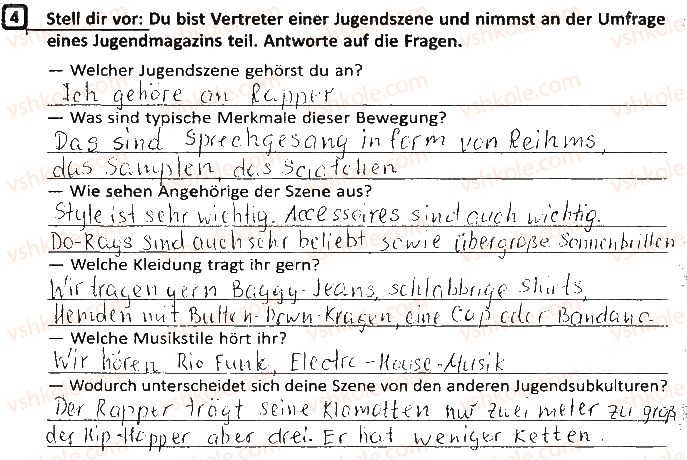 4 Stell dir vor: Du bist Vertreter einer Jugendszene und nimmst an der Umfrage
eines Jugendmagazins teil. Antworte auf die Fragen.
— Welcher Jugendszene gehörst du an?
Ich gehöre an Rapper
— Was sind typische Merkmale dieser Bewegung?
Das sind Sprechgesang in form von Reihms,
das Samplen, das Scratchen
— Wie sehen Angehörige der Szene aus?
Style ist sehr wichtig. Accessoires sind auch wichtig.
Do-Rays sind auch sehr beliebt sowie übergroße Sonnenbrillen
— Welche Kleidung tragt ihr gern?
Wir tragen gern Baggy-Jeans, schlabbrige Shirts,
Hemden mit Button-Down-Kragen, eine Cap oder Bandana
— Welche Musikstile hört ihr?
Wir hören Rio Funk, Electro-House-Musik
— Wodurch unterscheidet sich deine Szene von den anderen Jugendsubkulturen?
Der Rapper trägt seine Klamotten nur zwei meter zu groß
der Hip-Hopper aber drei. Er hat weniger Ketten.